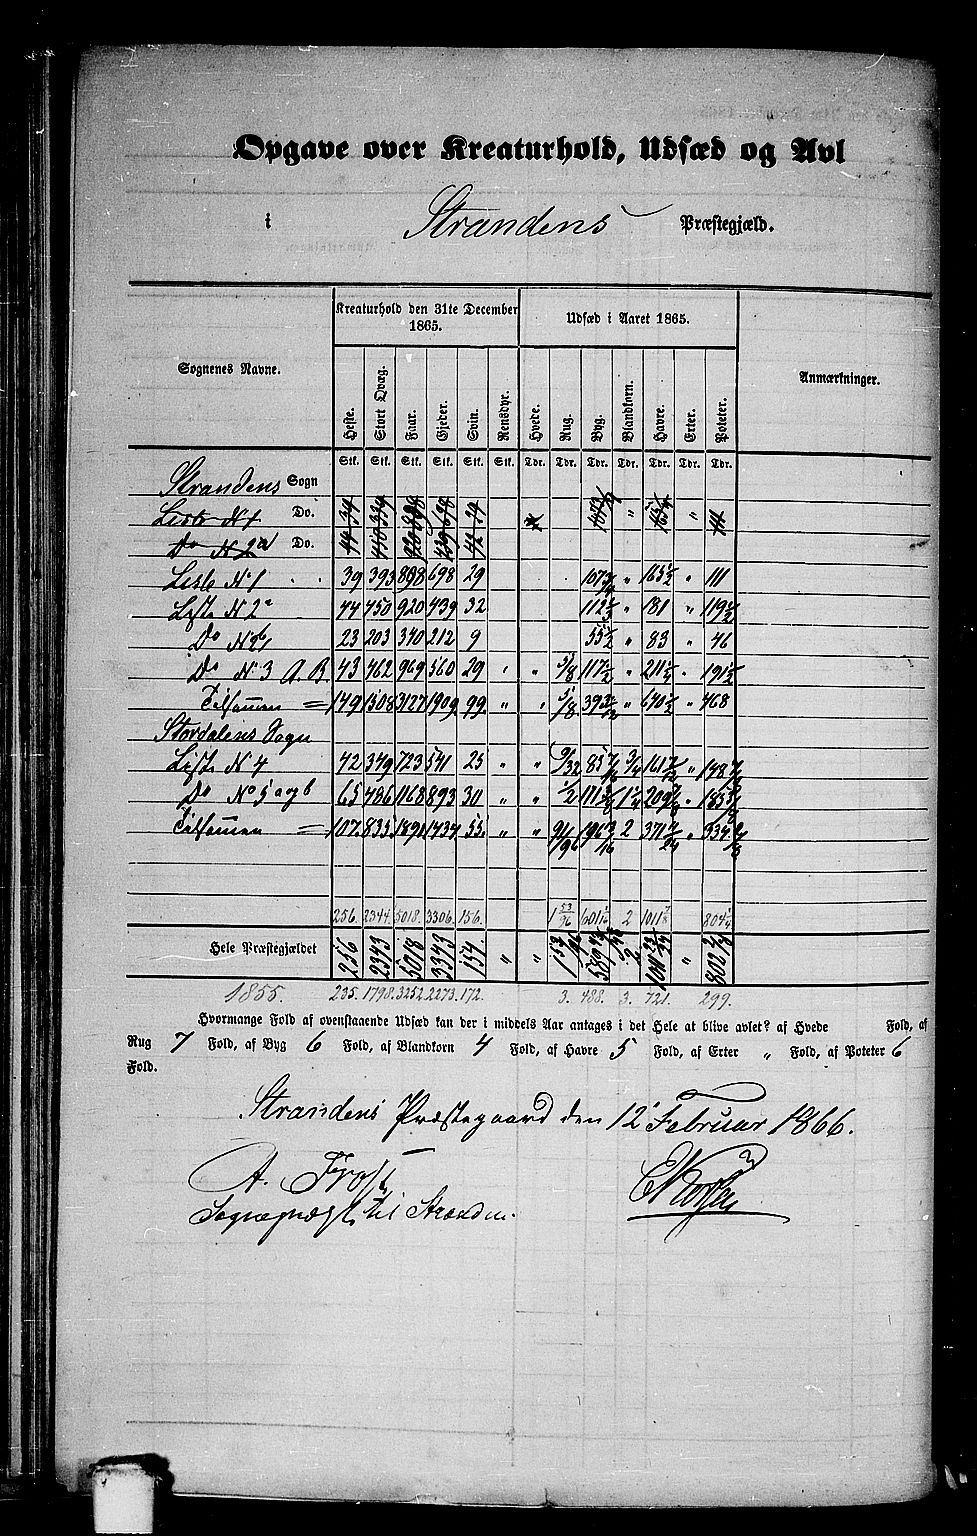 Opgave over Kreaturhold, Udsæd og Avl
i Strandens Præstegjæld.
Kreaturhold den 31te December 1865. Udsæd i Aaret 1865.
Sognenes Navne. Heste. Stort Qvæg. Faar. Gjeder. Svin. Rensdyr. Hvede. Rug. Byg. Blandkorn. Havre. Erter. Poteter. Anmærkninger.
Stk. Stk. Stk. Stk. Stk. Stk. Tdr. Tdr. Tdr. Tdr. Tdr. Tdr. Tdr.
Strandens Sogn
Liste N 1 Do.
Do N 2a Do. 44 920 439
Liste N 1 39 393 898 698 29 107 3/4 " 165 1/2 " 111
Liste N 2a 44 450 920 439 32 112 " 181 " 119 1/2
Do N 23 203 340 212 9 55 1/2 " 83 " 46
Do N 3 A. B. 43 462 969 560 29 " 5/8 117 1/2 " 211 " 191 1/2
Tilsamen = 149 1508 3127 1909 99 " " 5/8 " 640 1/2 " 468
Stordalens Sogn
Liste N 4 42 349 723 541 25 " " 9/32 85 3/4 161 " 148
Do No 5 a og b 65 486 1168 893 30 " " 1/2 111 1 1/4 209 " 185
Tilsamen = 107. 835 1891 1434. 55. " " 196 2 371 " 334
256. 2344. 5018. 3306. 156. 1 53/96 601 2 1011 7/8 804
Hele Præstegjældet 256 2343 5018 3343 154. " " " 802
1855. 235. 1798. 3252. 2273. 172. 3. 488. 3. 721. 299.
Hvormange Fold af ovenstaaende Udsæd kan der i middels Aar antages i det Hele at blive avlet? af Hvede Fold, af
Rug 7 Fold, af Byg 6 Fold, af Blandkorn 4 Fold, af Havre 5 Fold, af Erter " Fold, af Poteter 6
Fold.
Strandens Præstegaard den 12 Februar 1866.
A. Frost
Sognepræst til Stranden.